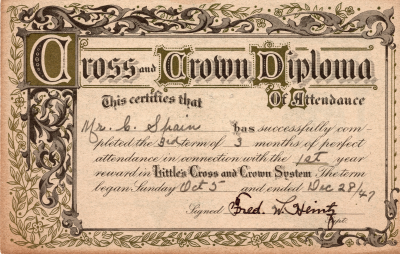 Cross and Crown Diploma
This certifies that Of Attendance
Mr. C. Spain has successfully com-
pleted the 3rd term of 3 months of perfect
attendance in connection with the 1st year
reward in Little's Cross and Crown System. The term
began Sunday Oct 5 and ended Dec 28/47
Signed Fred. W. Heintz
Supt.